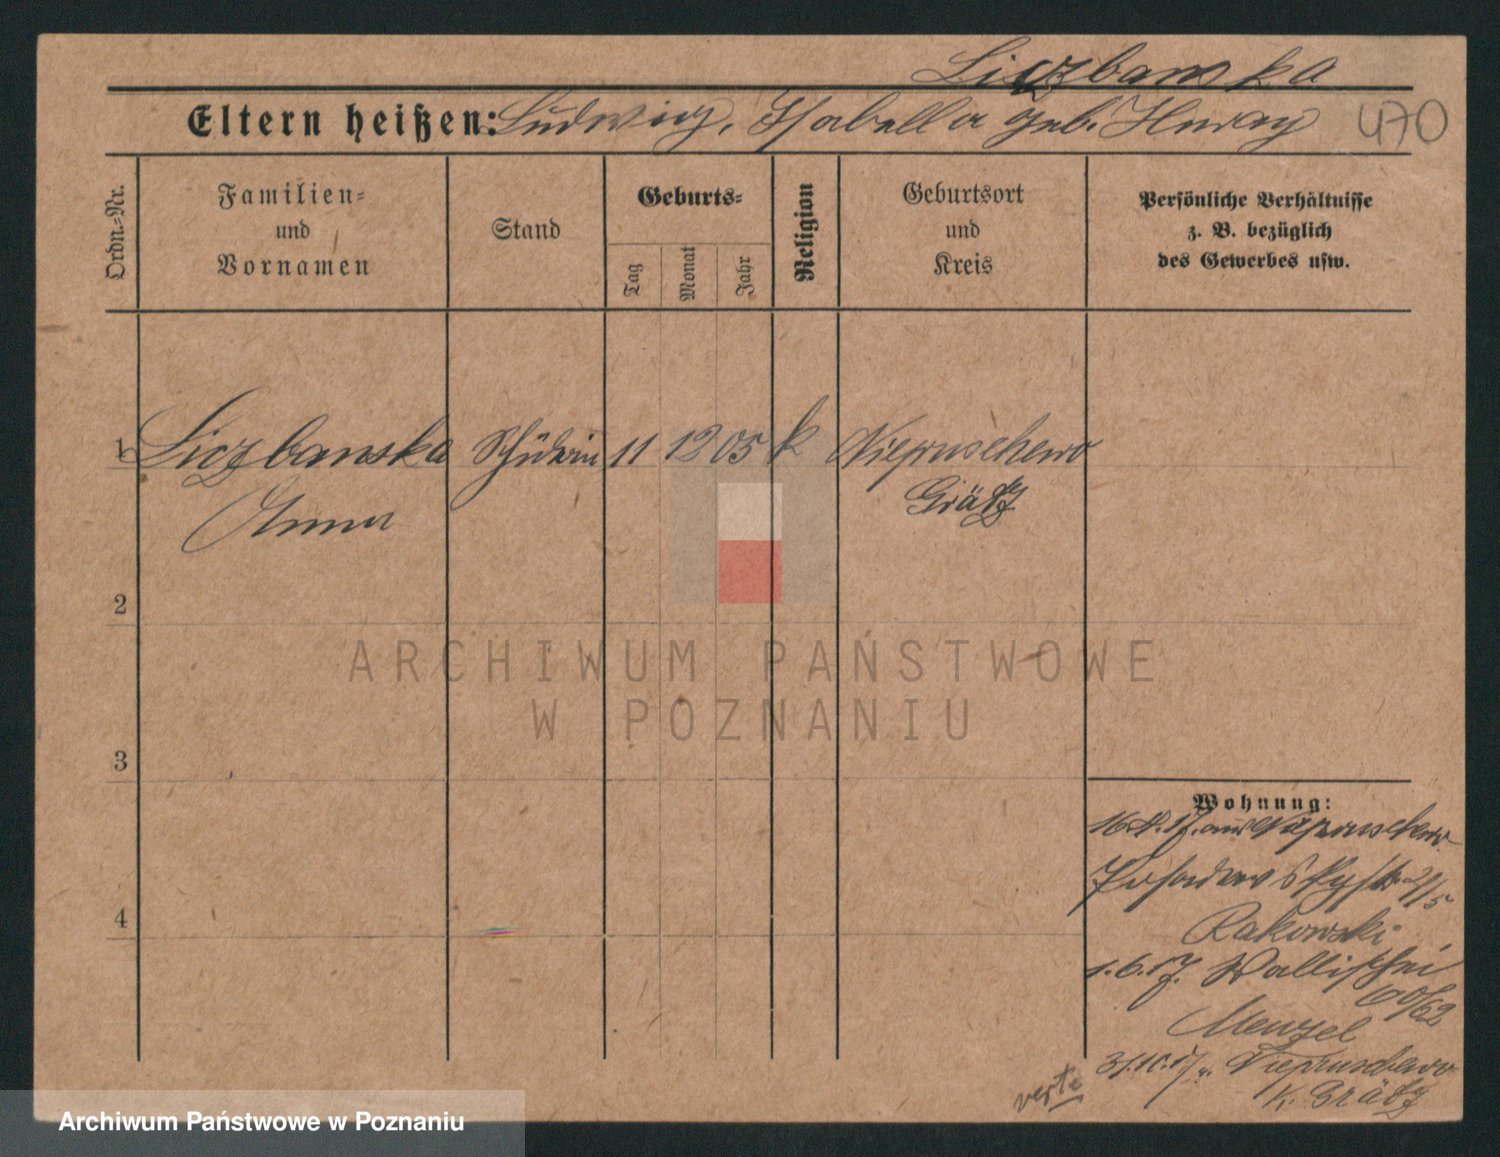 Liczbanska
Eltern heißen: Ludwig, Isabella geb. Huray
470
Ordn.-Nr.
Familien- und Vornamen
Stand
Geburts-
Tag
Monat
Jahr
Religion
Geburtsort und Kreis
Persönliche Verhältnisse
z. B. bezüglich
des Gewerbes usw.
1 Liczbanska Schülerin 11 12 05 k Niepruschewo
Anna Grätz
2
3
4
Wohnung:
16.4.17. aus Niepruschewo
21/5
Rakowski
1.6.17. Wallischei
60/62
Menzel
31.10.17 n. Niepruschewo
K. Grätz
verte
ARCHIWUM PAŃSTWOWE
W POZNANIU
Archiwum Państwowe w Poznaniu